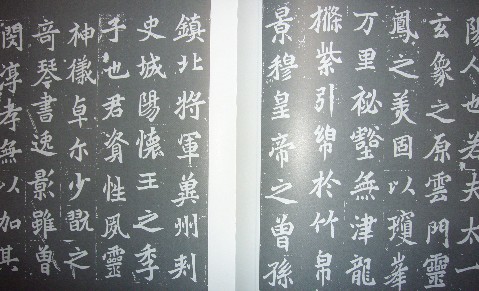 陽人也若夫太一
玄象之原雲門靈
鳳之美固以瓊峯
万里祕壑無津龍
紫引綿於竹帛
景穆皇帝之曾孫
鎮北將軍冀州刾
史城陽懷王之季
子也君資性夙靈
神儀卓尒少翫之
奇琴書逸影雖曾
閔淳孝無以加其